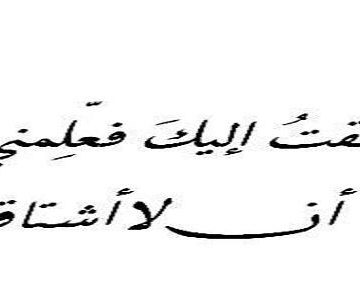 قتُ إليكَ فعّلِمني
أن لا أشتاق